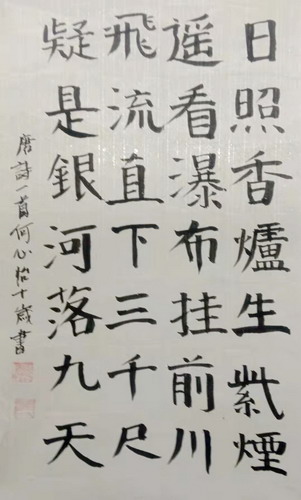 日照香爐生紫煙
遥看瀑布挂前川
飛流直下三千尺
疑是銀河落九天
唐詩一首何心怡十歲書